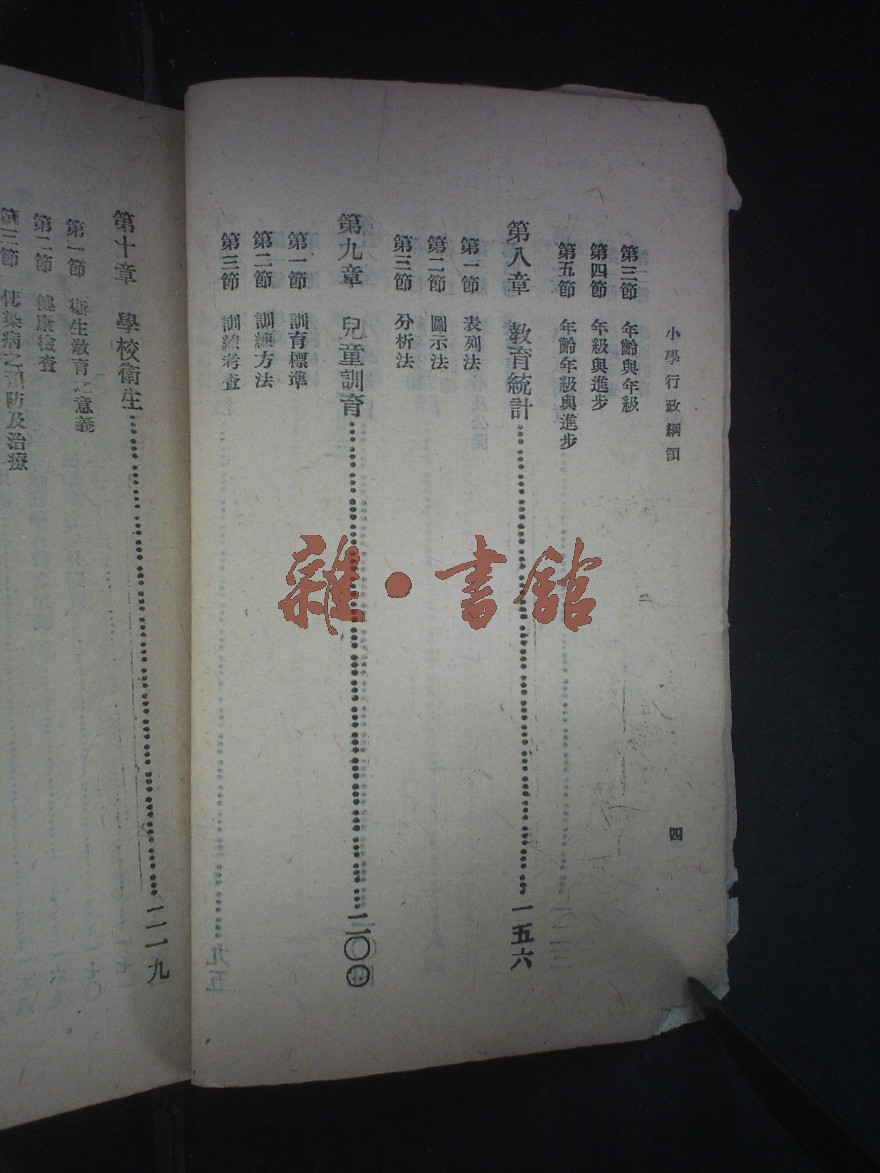 小學行政綱領
四
第三節　年齡與年級
第四節　年級與進步
第五節　年齡年級與進步
第八章　教育統計……………一五六
第一節　表列法
第二節　圖示法
第三節　分析法
第九章　兒童訓育……………二〇〇
第一節　訓育標準
第二節　訓練方法
第三節　訓練考查
第十章　學校衞生……………二一九
第一節　衞生教育之意義
第二節　健康檢查
第三節　傳染病之預防及治療
雜·書館